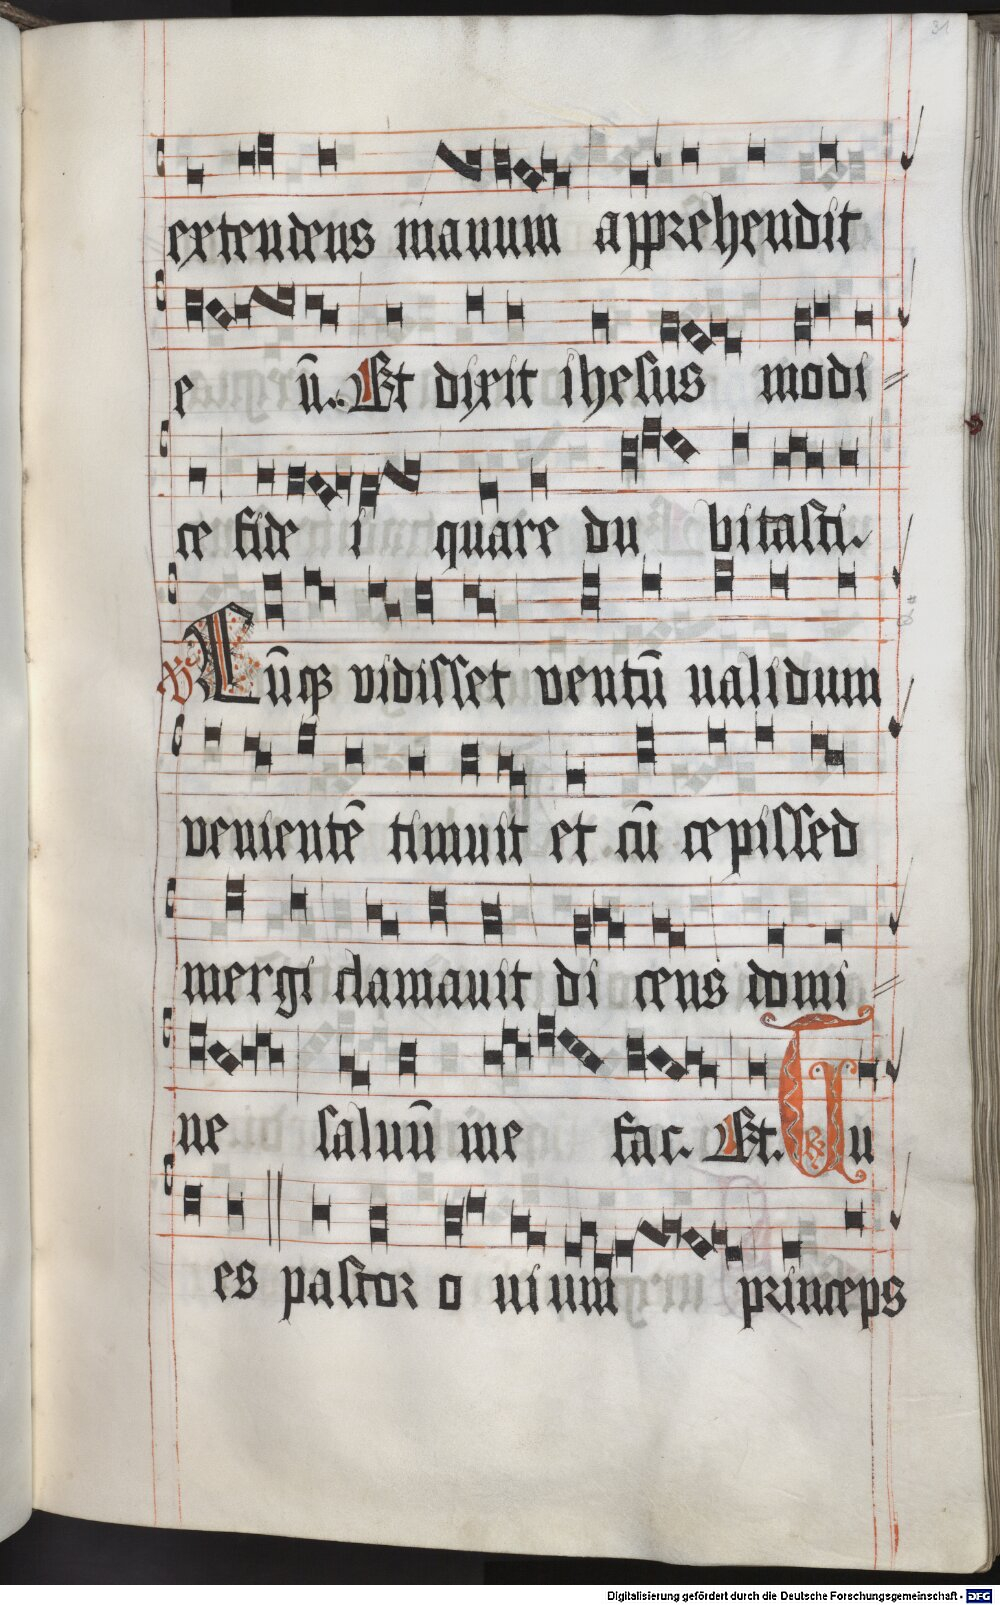 31
extendens manum apprehendit
e ū. Et dixit ihesus modi
ce fide i quare du bitasti.
V Cūqꝫ vidisset ventū ualidum
venientē timuit et cū cepissed
mergi clamauit di cens domi
ne saluū me fac. Et. R Tu
es pastor o uium princeps
Digitalisierung gefördert durch die Deutsche Forschungsgemeinschaft - DFG